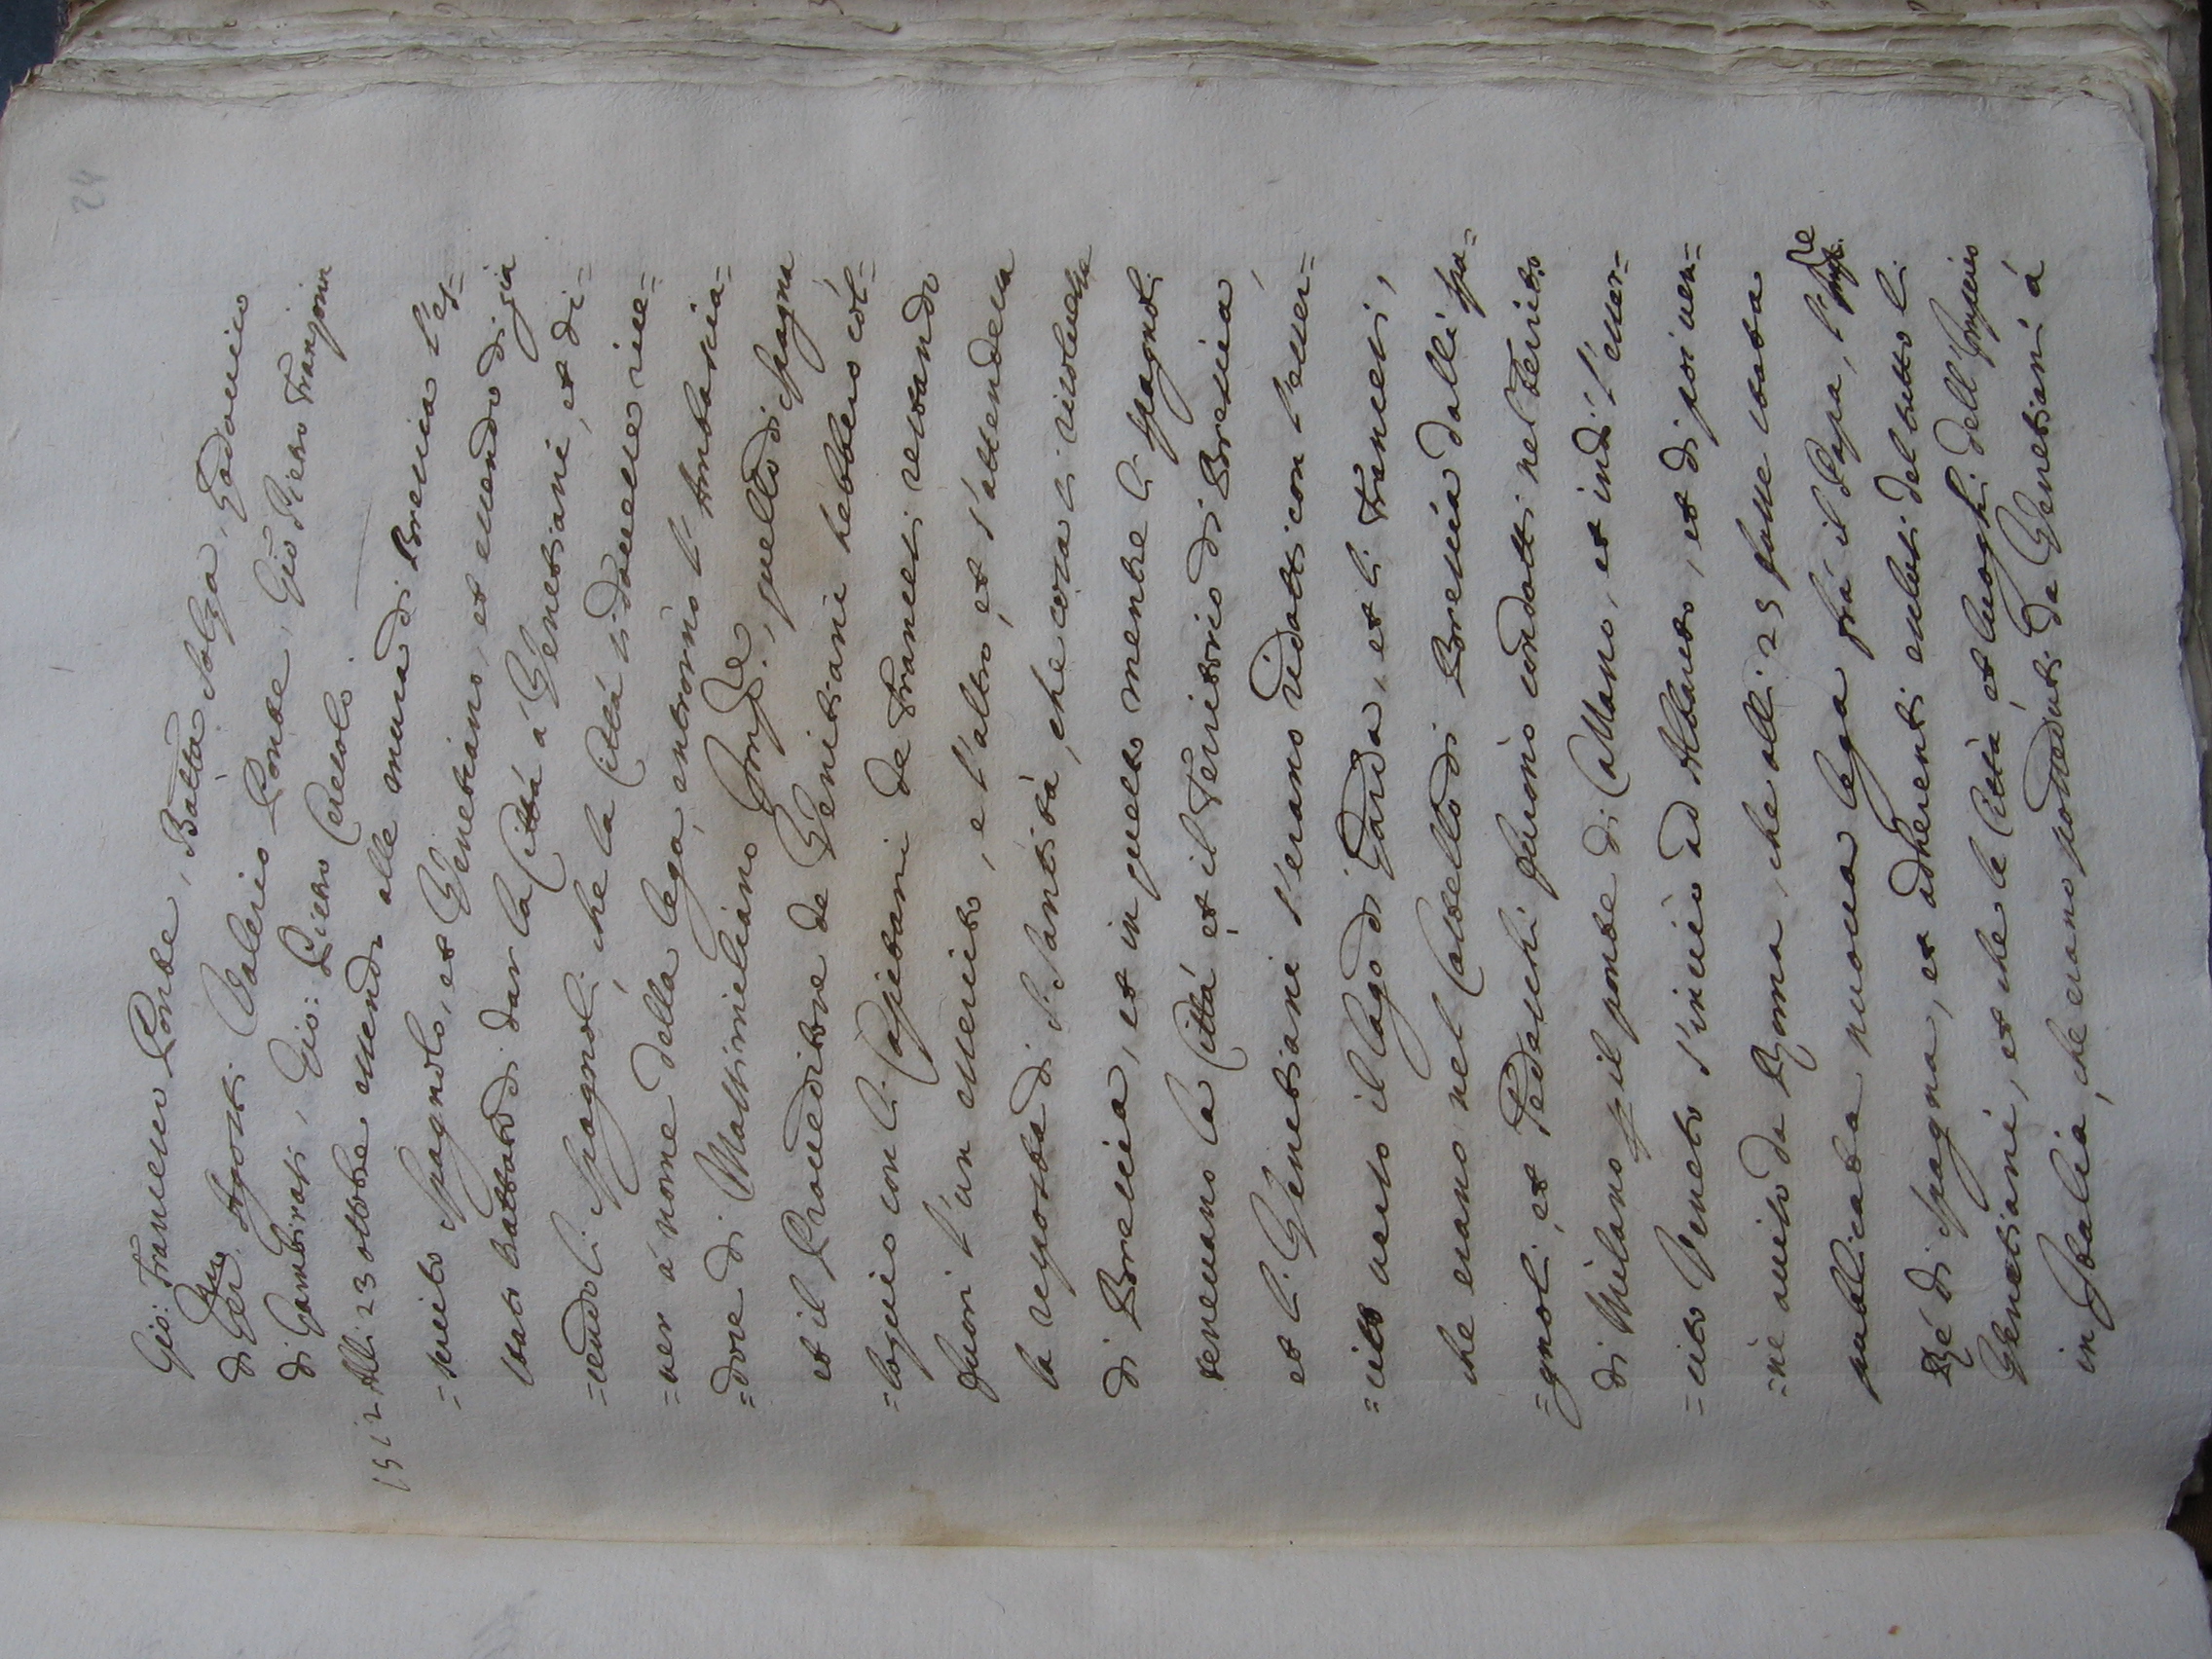 24
Gio: Francesco Ponte, Batta Solza, Lodovico
di Ger. Agosti Valerio Ponte, Gio: Pietro Franzoni
di Gambirati, Gio: Pietro Cereoli.
1512 Alli 23 ottobre essendo alle mura di Brescia l'es=
=ercito Spagnolo, et Venetiano, et essendo di già
stato trattato di dar la Città á Venetiani, et di=
=cendo li Spagnoli, che la Città si dovesse rice=
=ver á nome della lega, entrorno l'Ambascia=
=dore di Massimiliano Impre, quello di Spagna
et il Proveditore de Venetiani hebbero col=
=loquio con li Capitani de Francesi restando
fuori l'un esercito, e l'altro, et s'attendeva
la risposta di S. Santità, che cosa si risolvesse
di Brescia, et in questo mentre li Spagnoli
tenevano la Città, et il Territorio di Brescia,
et li Venetiani s'erano ridotti con l'eser=
=cito verso il Lago di Garda, et li Francesi,
che erano nel Castello di Brescia dalli Spa=
=gnoli, et Tedeschi furono condotti nel Territo
di Milano p il ponte di Cassano, et indi l'eser=
=cito Veneto s'inviò ad Albareto, et di poi ven=
=ne aviso da Roma, che alli 25 fusse stata
publicata nuova lega frà il Papa, l'Impre
Rè di Spagna, et adherenti esclusi del tutto li
Venetiani, et che le Città, et luoghi dell'Imperio
in Italia, che erano posseduti da Venetiani á